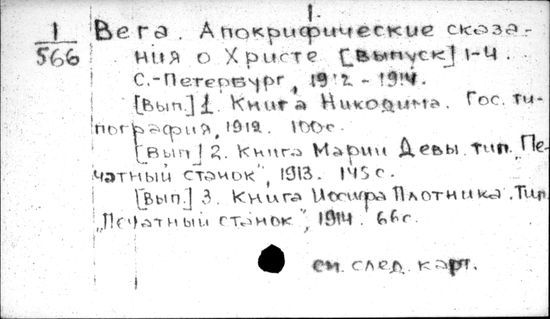 1.
1
566
Вега. Апокрифические сказа-
ния о Христе [выпуск] 1-4.
С.-Петербург, 1912 - 1914.
[Вып.] 1. Книга Никодима. Гос. ти-
пография, 1912. 100 с.
[Вып] 2. Книга Марии Девы. тип. „Пе-
чатный станок", 1913. 145 с.
[Вып.] 3. Книга Иосифа Плотника. Тип.
„Печатный станок", 1914. 66 с.
см. след. карт.